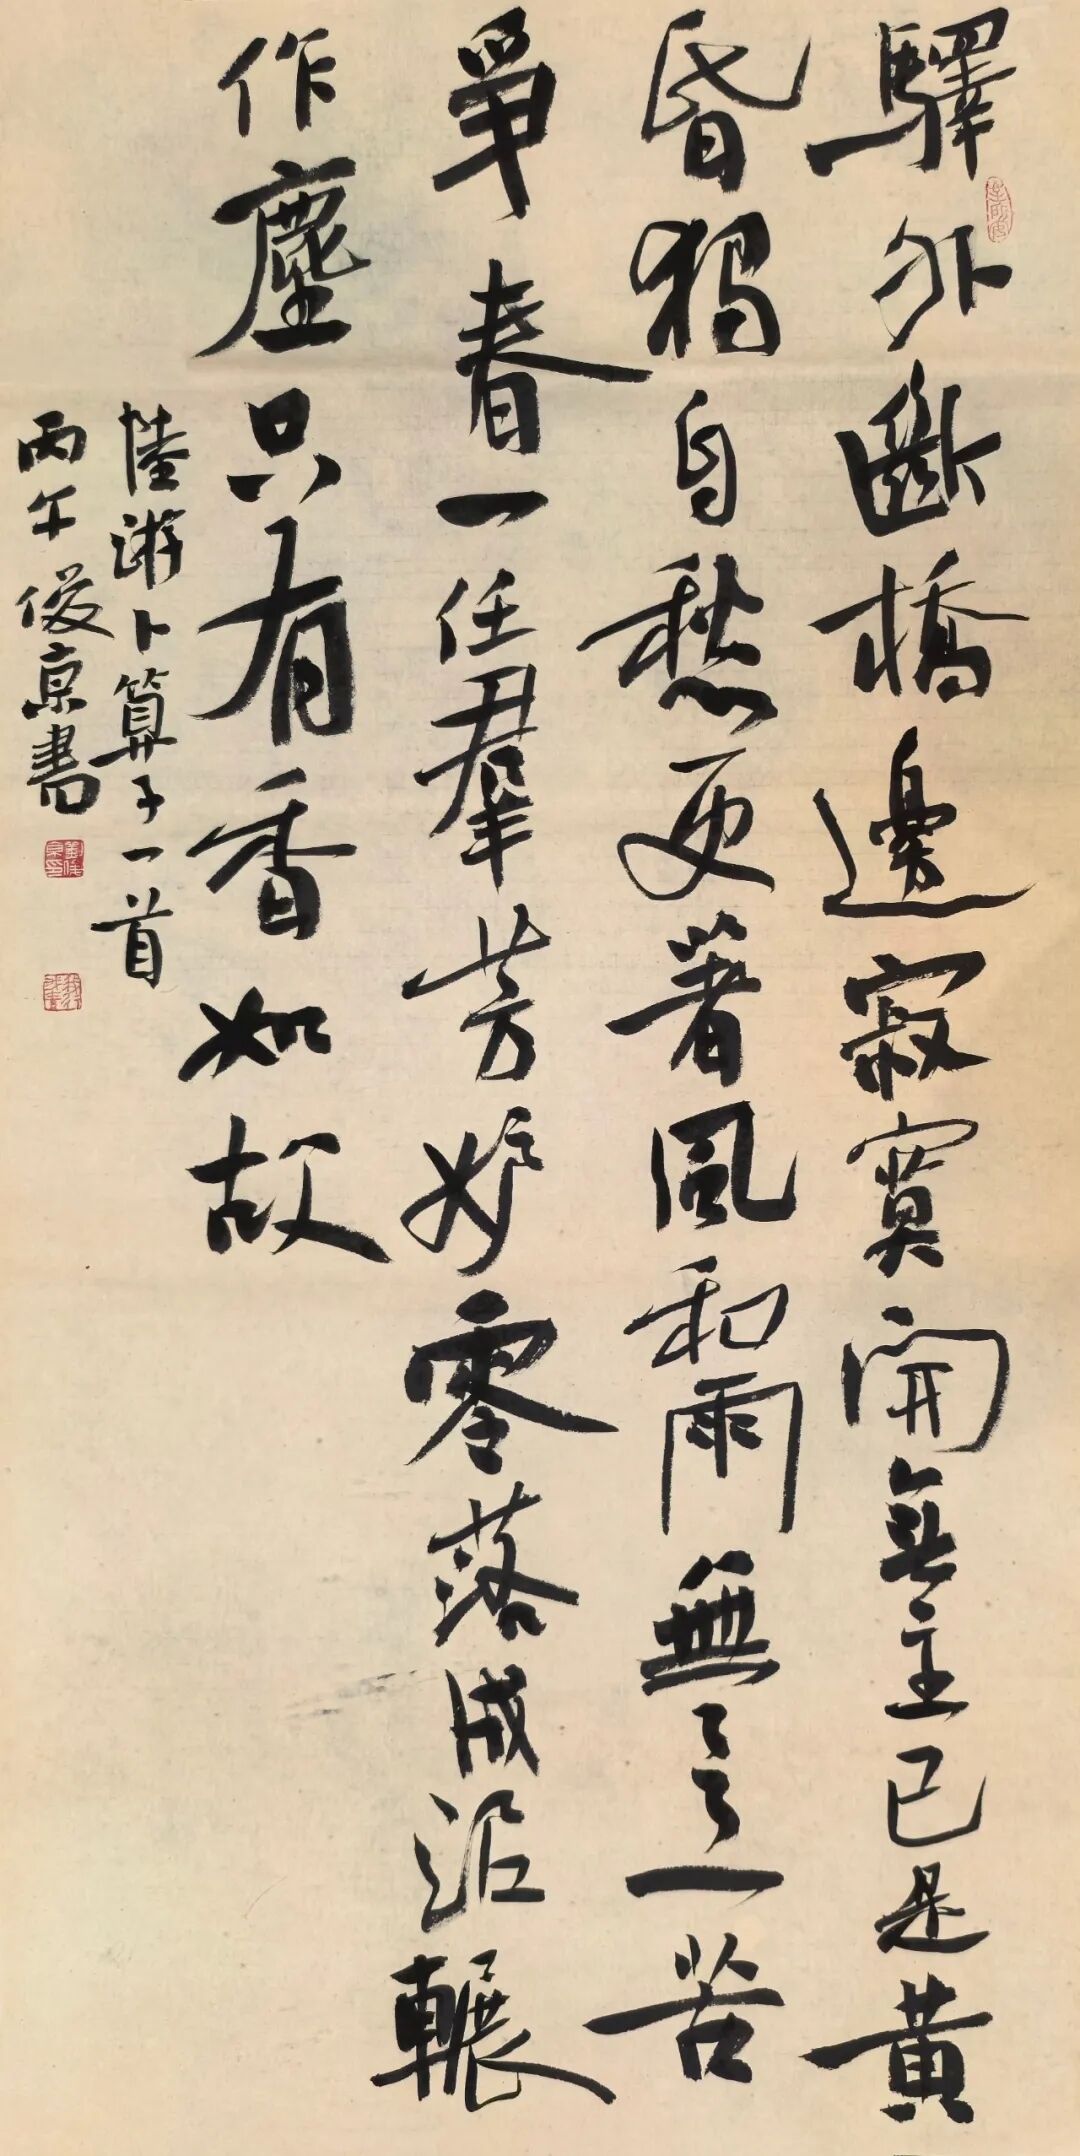 驛外斷橋邊寂寞開無主已是黃
昏獨自愁更著風和雨無意苦
爭春一任羣芳妒零落成泥輾
作塵只有香如故
陸游卜算子一首
丙午俊京書